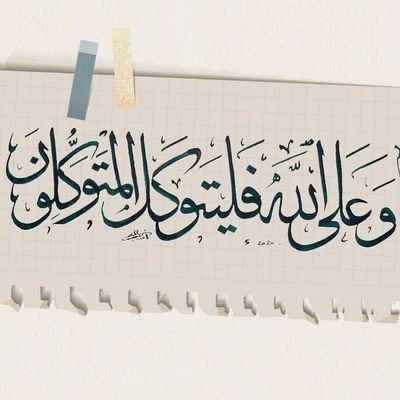 وَعَلى اللّٰه فَليتوكَل المتوَكّلون
5 2020